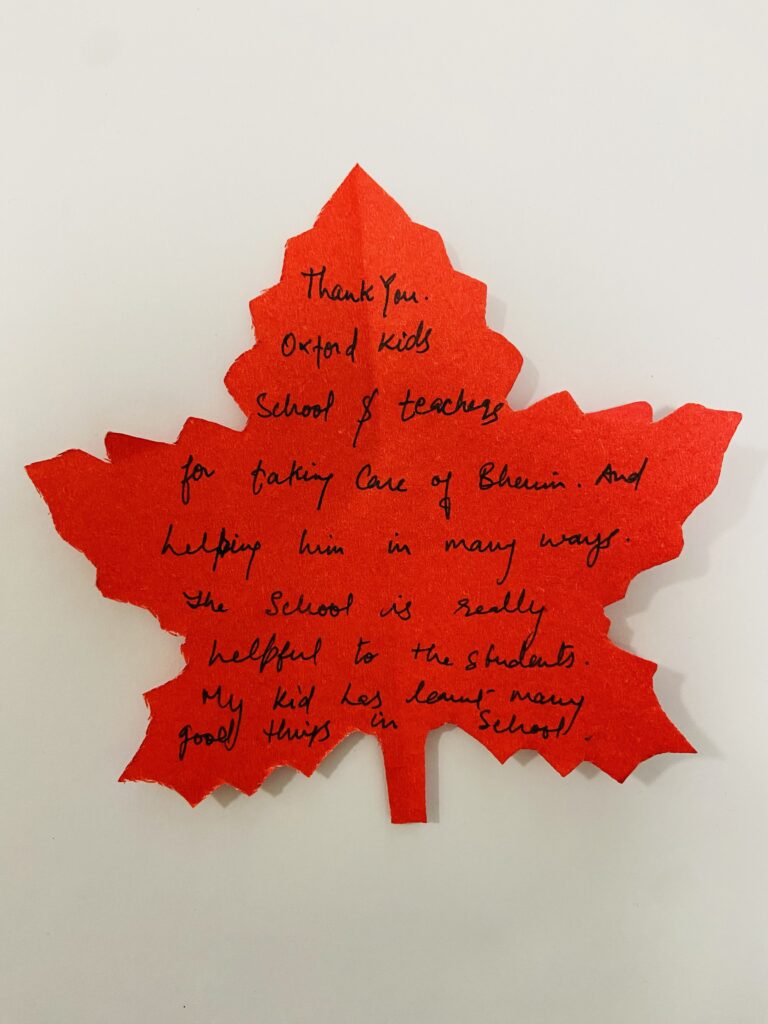 Thank You.
Oxford Kids
School & teachers
for taking Care of Bhenin. And
helping him in many ways.
The School is really
helpful to the students.
My kid has learnt many
good things in School.